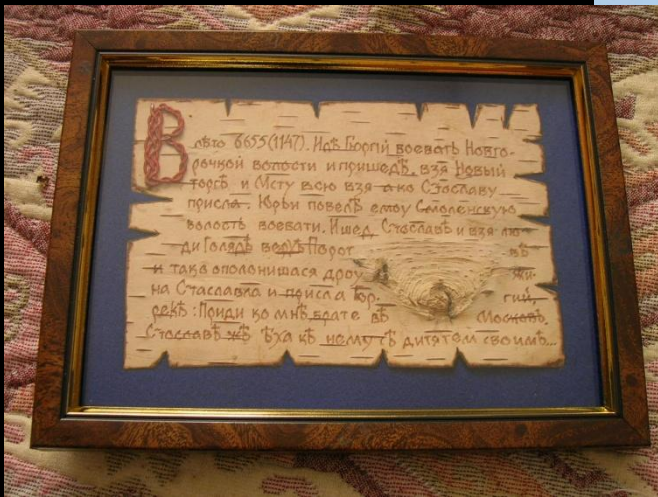 В лѣто 6655(1147). Идѣ Гюргїй воевать Новго-
рочкой волости и пришедѣ, взя Новый
торгѣ и Мсту всю взя а ко Стославу
присла. Юрьи повелѣ емоу Смоленскую
волость воевати. Ишед Стославѣ и взя лю-
ди Голядѣ верхѣ Порот вѣ
и така ополонишася дроу жи-
на Стаславля и присла Гюр- гий,
рекѣ: Приди ко мнѣ, брате вѣ Московѣ.
Стославѣ жѣ ѣха кѣ немусѣ дитятем своимѣ...